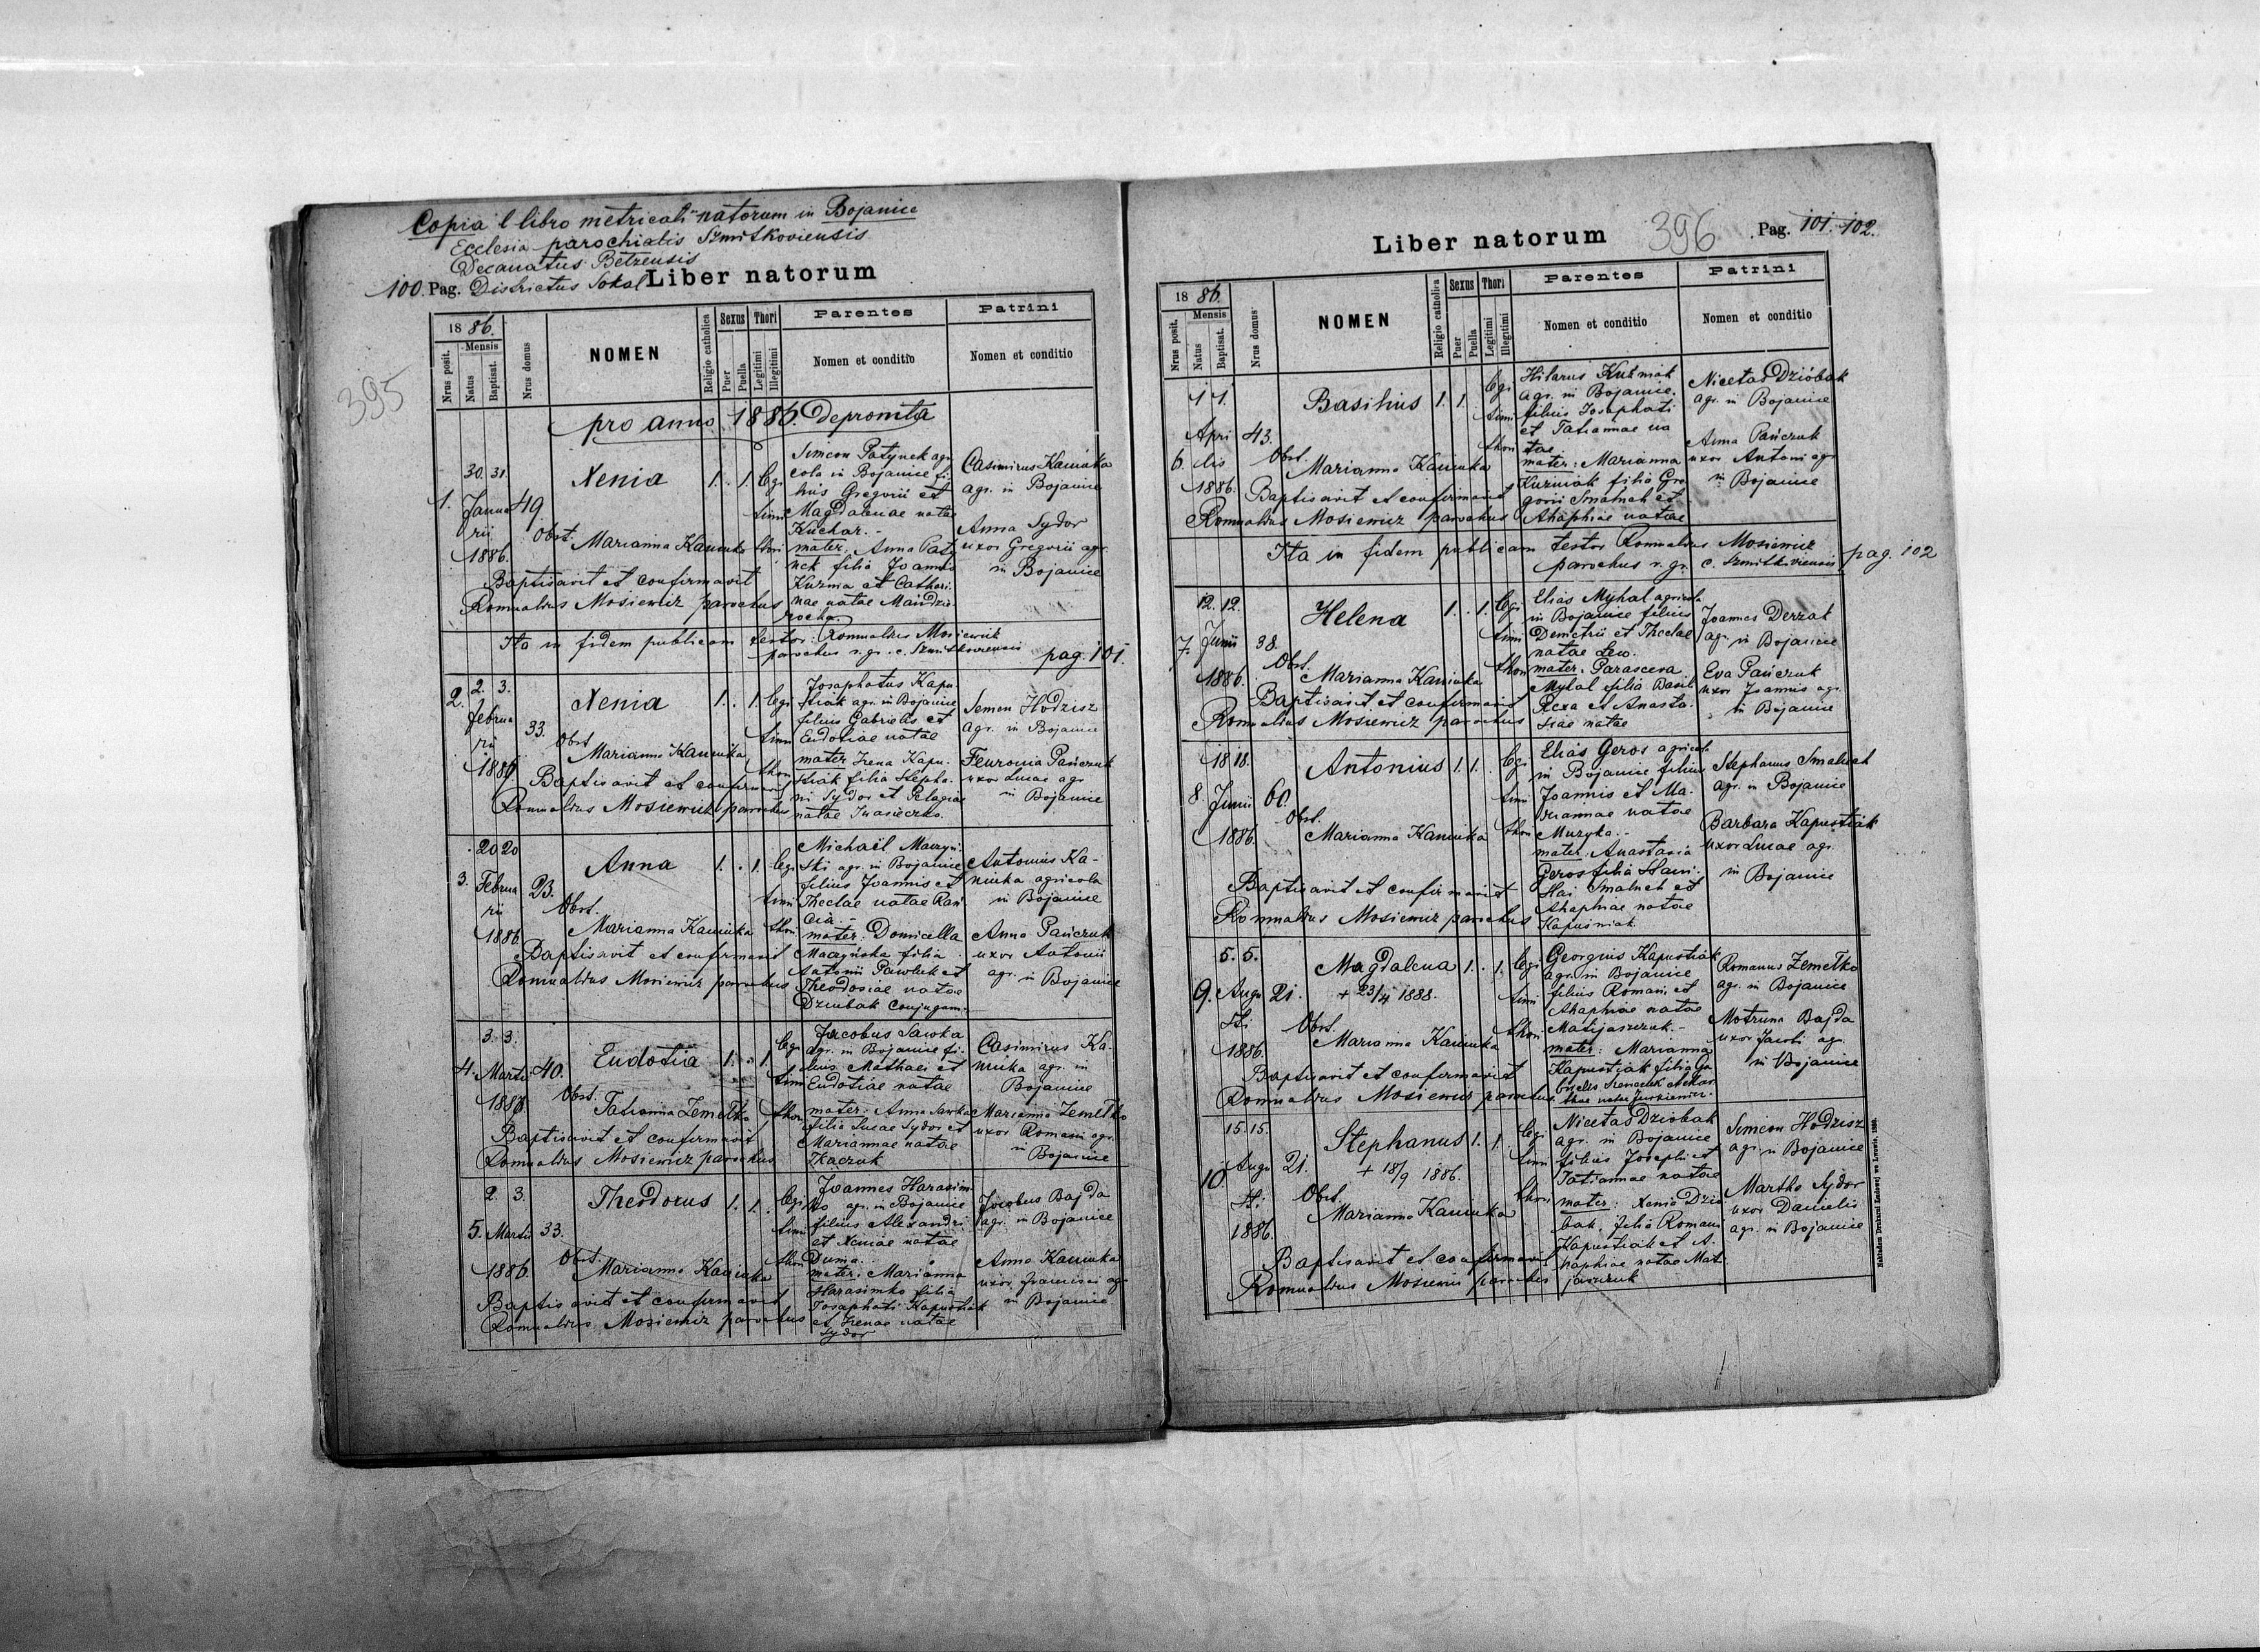 Copia l libro metricali natorum in Bojanice
Ecclesia parochialis Szmitkoviensis
Decanatus Betzensis
100. Pag. Districtus Sokal Liber natorum
395
1886.
Nrus posit.
Mensis
Natus
Baptisat.
Nrus domus
NOMEN
Religio catholica
Sexus
Puer
Puella
Thori
Legitimi
Illegitimi
Parentes
Nomen et conditio
Patrini
Nomen et conditio
pro anno 1886. depromta
1.
30. 31.
Janua
rii
1886.
49
Xenia
1. . 1. legi
timi
thori
Obst. Marianna Kaminka
Baptisavit et confirmavit
Romualdus Mosiewicz parochus
Simeon Patynek agri
cola in Bojanice fi
lius Gregorii et
Magdalenae natae
Kuchar. -
mater: Anna Paty
nek filia Joannis
Kuzma et Cathari
nae natae Mandzia
rocha.
Casimirus Kaminka
agr. in Bojanice
Anna Sydor
uxor Gregorii agr.
in Bojanice
Ita in fidem publicam testor: Romualdus Mosiewicz
parochus r. gr. c. Szmitkoviensis
pag. 101.
2.
2. 3.
februa
rii
1886.
33.
Xenia
1. . 1. legi
timi
thori
Obst.
Marianna Kaminka
Baptisavit et confirmavit
Romualdus Mosiewicz parochus
Josaphatus Kapu
stiak agr. in Bojanice
filius Gabrielis et
Eudotiae natae
mater Irena Kapu
stiak filia Stepha
ni Sydor et Pelagiae
natae Iwasieczko.
Semen Hodzisz
agr. in Bojanice
Feuronia Pańczuk
uxor Lucae agr
in Bojanice
3.
20 20
Februa
rii
1886
23.
Anna
1. . 1. legi
timi
thori
Obst.
Marianna Kaminka
Baptisavit et confirmavit
Romualdus Mosiewicz parochus
Michaël Maczyń
ski agr. in Bojanice
filius Joannis et
Theclae natae
mater: Domicella
Maczyńska filia
Antonii Pawluk et
Theodosiae natae
Dziubak conjugum.
Antonius Ka-
minka agricola
in Bojanice
Anna Pańczuk
uxor Antonii
agr. in Bojanice
4.
3. 3.
Martii
1886.
40.
Eudotia
1. . 1.
legi
timi
thori
Obst.
Tatianna Zemełko
Baptisavit et confirmavit
Romualdus Mosiewicz parochus
Jacobus Sawka
agr. in Bojanice fi-
lius Mathaei et
Eudotiae natae
mater: Anna Sawka
filia Lucae Sydor et
Mariannae natae
Tkaczuk
Casimirus Ka-
minka agr. in
Bojanice
Marianna Zemełko
uxor Romani agr.
in Bojanice
5.
2. 3.
Martii
1886.
33.
Theodorus
1. 1. legi
timi
thori
Obst.
Marianna Kaminka
Baptisavit et confirmavit
Romualdus Mosiewicz parochus
Joannes Harasim
ko agr. in Bojanice
filius Alexandri
et Xeniae natae
Duma.
mater: Marianna
Harasimko filia
Josaphati Kapustiak
et Irenae natae
Sydor
Jacobus Bajda
agr. in Bojanice
Anna Kaminka
uxor Francisci agr
in Bojanice
Liber natorum
396
Pag. 101. 102.
1886.
Nrus posit.
Mensis
Natus
Baptisat.
Nrus domus
NOMEN
Religio catholica
Sexus
Puer
Puella
Thori
Legitimi
Illegitimi
Parentes
Nomen et conditio
Patrini
Nomen et conditio
6.
1 1.
Apri
lis
1886.
43.
Basilius
1. 1. legi
timi
thori
Obst.
Marianna Kaminka
Baptisavit et confirmavit
Romualdus Mosiewicz parochus
Hilarus Kuźniak
agr. in Bojanice.
filius Josaphati
et Tatiannae na
tae
mater: Marianna
Kuźniak filia Gre
gorii Smaluch et
Ahaphiae natae
Nicetas Dzióbak
agr. in Bojanice
Anna Pańczuk
uxor Antoni agr
in Bojanice
Ita in fidem publicam testor Romualdus Mosiewicz
parochus r. gr. c. Szmitkoviensis
pag. 102
7.
12. 12.
Junii
1886.
38.
Helena
1. . 1. legi
timi
thori
Obst.
Marianna Kaminka
Baptisavit et confirmavit
Romualdus Mosiewicz parochus
Elias Myhal agricola
in Bojanice filius
Demetrii et Theclae
natae Lew.
mater: Parasceva
Myhal filia Basil
Rexa et Anasta-
siae natae
Joannes Derzat
agr. in Bojanice
Eva Pańczuk
uxor Joannis agr.
in Bojanice
8.
18 18.
Junii
1886.
60.
Antonius
1. 1. . legi
timi
thori
Obst.
Marianna Kaminka
Baptisavit et confirmavit
Romualdus Mosiewicz parochus
Elias Geros agricola
in Bojanice filius
Joannis et Ma-
riannae natae
Muzyka. -
mater: Anastasia
Geros filia Stani
slai Smaluch et
Ahaphiae natae
Kapuśniak
Stephanus Smaluch
agr. in Bojanice
Barbara Kapustiak
uxor Lucae agr.
in Bojanice
9.
5. 5.
Augu
sti
1886.
21.
Magdalena
+ 23/4 1888.
1. . 1. legi
timi
thori
Obst.
Marianna Kaminka
Baptisavit et confirmavit
Romualdus Mosiewicz parochus
Georgius Kapustiak
agr. in Bojanice
filius Romani et
Ahaphiae natae
Matijaszczuk. -
mater: Marianna
Kapustiak filia Ga
Romanus Zemełko
agr. in Bojanice
Motruna Bajda
uxor Jacobi agr.
in Bojanice
10
15. 15.
Augu
sti
1886.
21.
Stephanus
+ 18/9 1886.
1. 1. legi
timi
thori
Obst.
Marianna Kaminka
Baptisavit et confirmavit
Romualdus Mosiewicz parochus
Nicetas Dziobak
agr. in Bojanice
filius Josephi et
Tatiannae natae
mater: Xenia Dzio
bak, filia Romani
Kapustiak et A-
haphiae natae Mati
jaszczuk
Simeon Hodzisz
agr. in Bojanice
Martha Sydor
uxor Danielis
agr. in Bojanice
Nakładem Drukarni Ludowej we Lwowie.